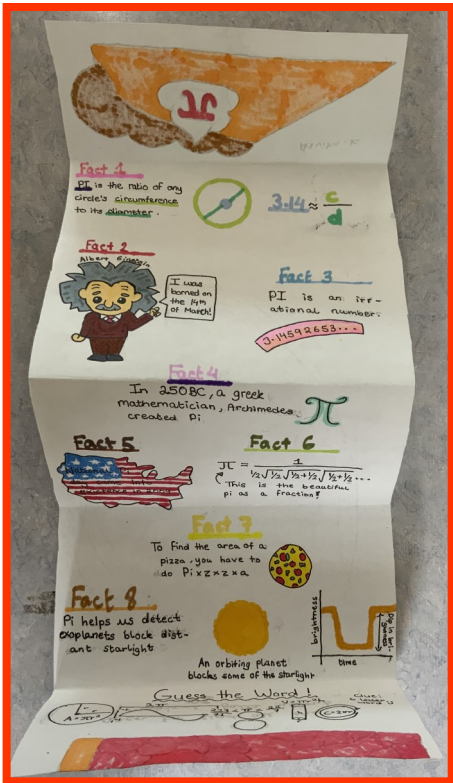 π
Fact 1
PI is the ratio of any
circle's circumference
to its diameter.
3.14 ≈ c/d
Fact 2
Albert Einstein
I was
borned on
the 14th
of March!
Fact 3
PI is an irr-
ational number:
3.14592653...
Fact 4
In 250BC, a greek
mathematician, Archimedes
created Pi
π
Fact 5
National
Fact 6
π = 1 / ½√½√½+½√½+½...
This is the beautiful
pi as a fraction!
Fact 7
To find the area of a
pizza, you have to
do Pi x z x z x a
Fact 8
Pi helps us detect
exoplanets block dist-
ant starlight
An orbiting planet
blocks some of the starlight
brightness
Dip in bri-
ghtness
time
Guess the Word!
Clue: